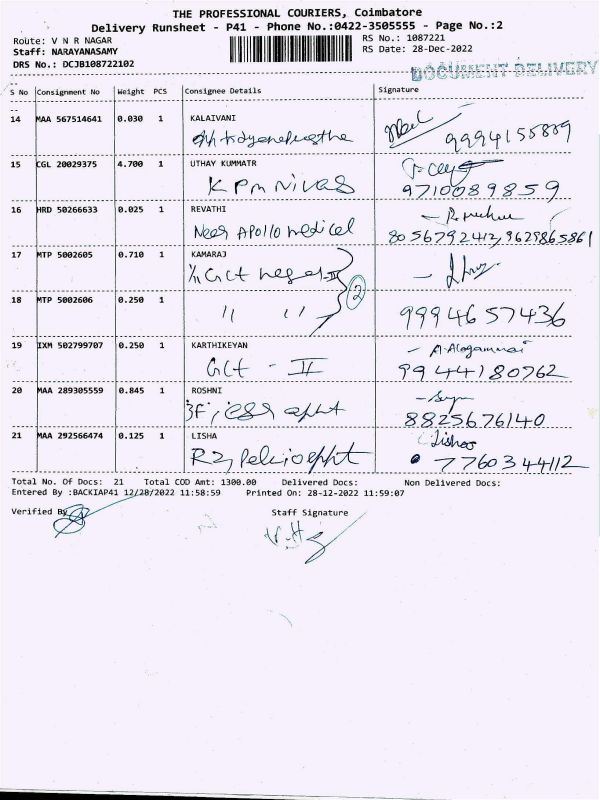 THE PROFESSIONAL COURIERS, Coimbatore
Delivery Runsheet - P41 - Phone No.:0422-3505555 - Page No.:2
Route: V N R NAGAR
RS No.: 1087221
Staff: NARAYANASAMY
RS Date: 28-Dec-2022
DRS No.: DCJB108722102
DOCUMENT DELIVERY
S No Consignment No Weight PCS Consignee Details Signature
14 MAA 567514641 0.030 1 KALAIVANI
9994155889
15 CGL 20029375 4.700 1 UTHAY KUMMATR
KPM Nivas 9710089859
16 HRD 50266633 0.025 1 REVATHI
Near Apollo medical 8056792412, 9629865861
17 MTP 5002605 0.710 1 KAMARAJ
2
18 MTP 5002606 0.250 1
" " 9994657436
19 IXM 502799707 0.250 1 KARTHIKEYAN
GCT - II 9944180762
20 MAA 289305559 0.845 1 ROSHNI
3F, appt 8825676140
21 MAA 292566474 0.125 1 LISHA
Lisha
R2, appt 7760344112
Total No. Of Docs: 21 Total COD Amt: 1300.00 Delivered Docs: Non Delivered Docs:
Entered By :BACKIAP41 12/28/2022 11:58:59 Printed On: 28-12-2022 11:59:07
Verified By
Staff Signature